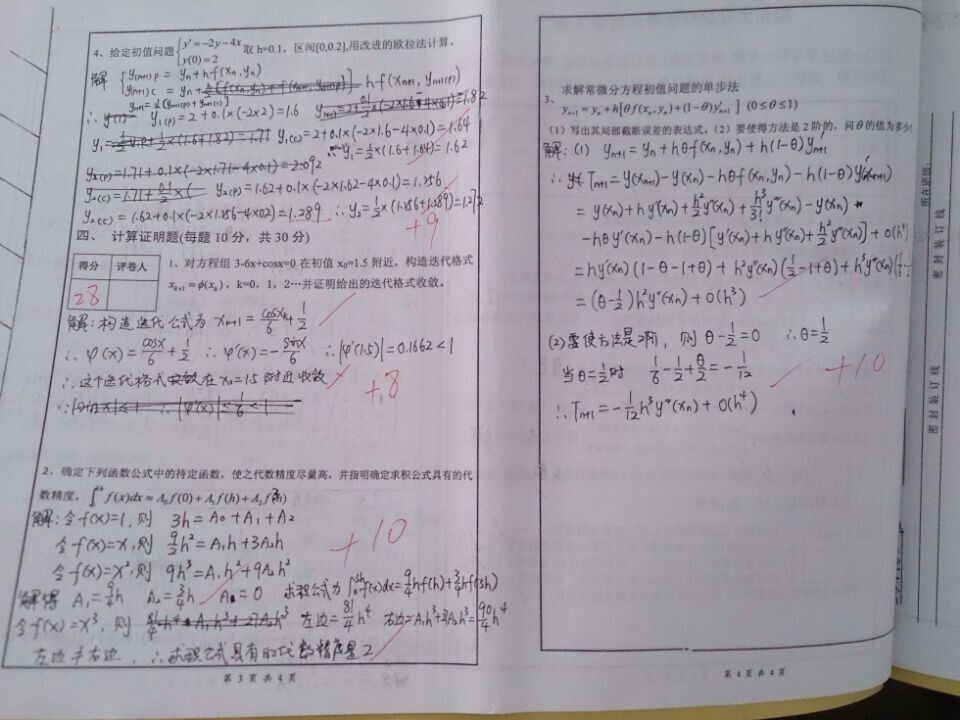 4、给定初值问题{y′=-2y-4x y(0)=2 取 h=0.1,区间[0,0.2],用改进的欧拉法计算。
解 { y(n+1)p = yn+hf(xn,yn)
y(n+1)c = yn+ hf(xn+1, yn+1(p))
yn+1=½(y(n+1)p+y(n+1)c)
∴ y1(p)=2+0.1×(-2×2)=1.6
y1(c)=2+0.1×(-2×1.6-4×0.1)=1.64
∴y1=½×(1.6+1.64)=1.62
y2(p)=1.62+0.1×(-2×1.62-4×0.1)=1.256
y2(c)=1.62+0.1×(-2×1.256-4×0.2)=1.289 ∴y2=½×(1.256+1.289)=1.272
+9
四、 计算证明题(每题 10 分,共 30 分)
得分 评卷人
28
1、对方程组 3-6x+cosx=0 在初值 x0=1.5 附近,构造迭代格式
xk+1=ϕ(xk), k=0, 1, 2…并证明给出的迭代格式收敛。
解:构造迭代公式为 xk+1=cosxk/6+1/2
∴ φ(x)=cosx/6+1/2 ∴φ′(x)=-sinx/6 ∴|φ′(1.5)|=0.1662<1
∴这个迭代格式在x0=1.5附近收敛
+8
2、确定下列函数公式中的待定函数,使之代数精度尽量高,并指明确定求积公式具有的代
数精度。∫₀³ʰ f(x)dx≈A0f(0)+A1f(h)+A2f(3h)
解:令f(x)=1,则 3h=A0+A1+A2
令f(x)=x,则 9/2h²=A1h+3A2h
令f(x)=x²,则 9h³=A1h²+9A2h²
+10
解得 A1=9/4h A2=3/4h A0=0 求积公式为∫₀³ʰf(x)dx=9/4hf(h)+3/4hf(3h)
令f(x)=x³,则 左边=81/4h⁴ 右边=A1h³+27A2h³=90/4h⁴
左边≠右边 ∴求积公式具有的代数精度是2
第 3 页 共 4 页
3、 求解常微分方程初值问题的单步法
yn+1=yn+h[θf(xn,yn)+(1-θ)y′n+1] (0≤θ≤1)
(1)写出其局部截断误差的表达式。(2)要使得方法是 2 阶的,问θ的值为多少
解:(1) yn+1=yn+hθf(xn,yn)+h(1-θ)y′n+1
∴ Tn+1=y(xn+1)-y(xn)-hθf(xn,yn)-h(1-θ)y′(xn+1)
=y(xn)+hy′(xn)+h²/2y″(xn)+h³/3!y‴(xn)-y(xn)
-hθy′(xn)-h(1-θ)[y′(xn)+hy″(xn)+h²/2y‴(xn)]+O(h⁴)
=hy′(xn)(1-θ-1+θ)+h²y″(xn)(1/2-1+θ)+h³y‴(xn)
=(θ-1/2)h²y″(xn)+O(h³)
(2)要使方法是2阶,则θ-1/2=0 ∴θ=1/2
当θ=1/2时 1/6-1/2+θ/2=-1/12
+10
∴Tn+1=-1/12h³y‴(xn)+O(h⁴)
第 4 页 共 4 页
所在班级:
密 封 装 订 线
密 封 装 订 线